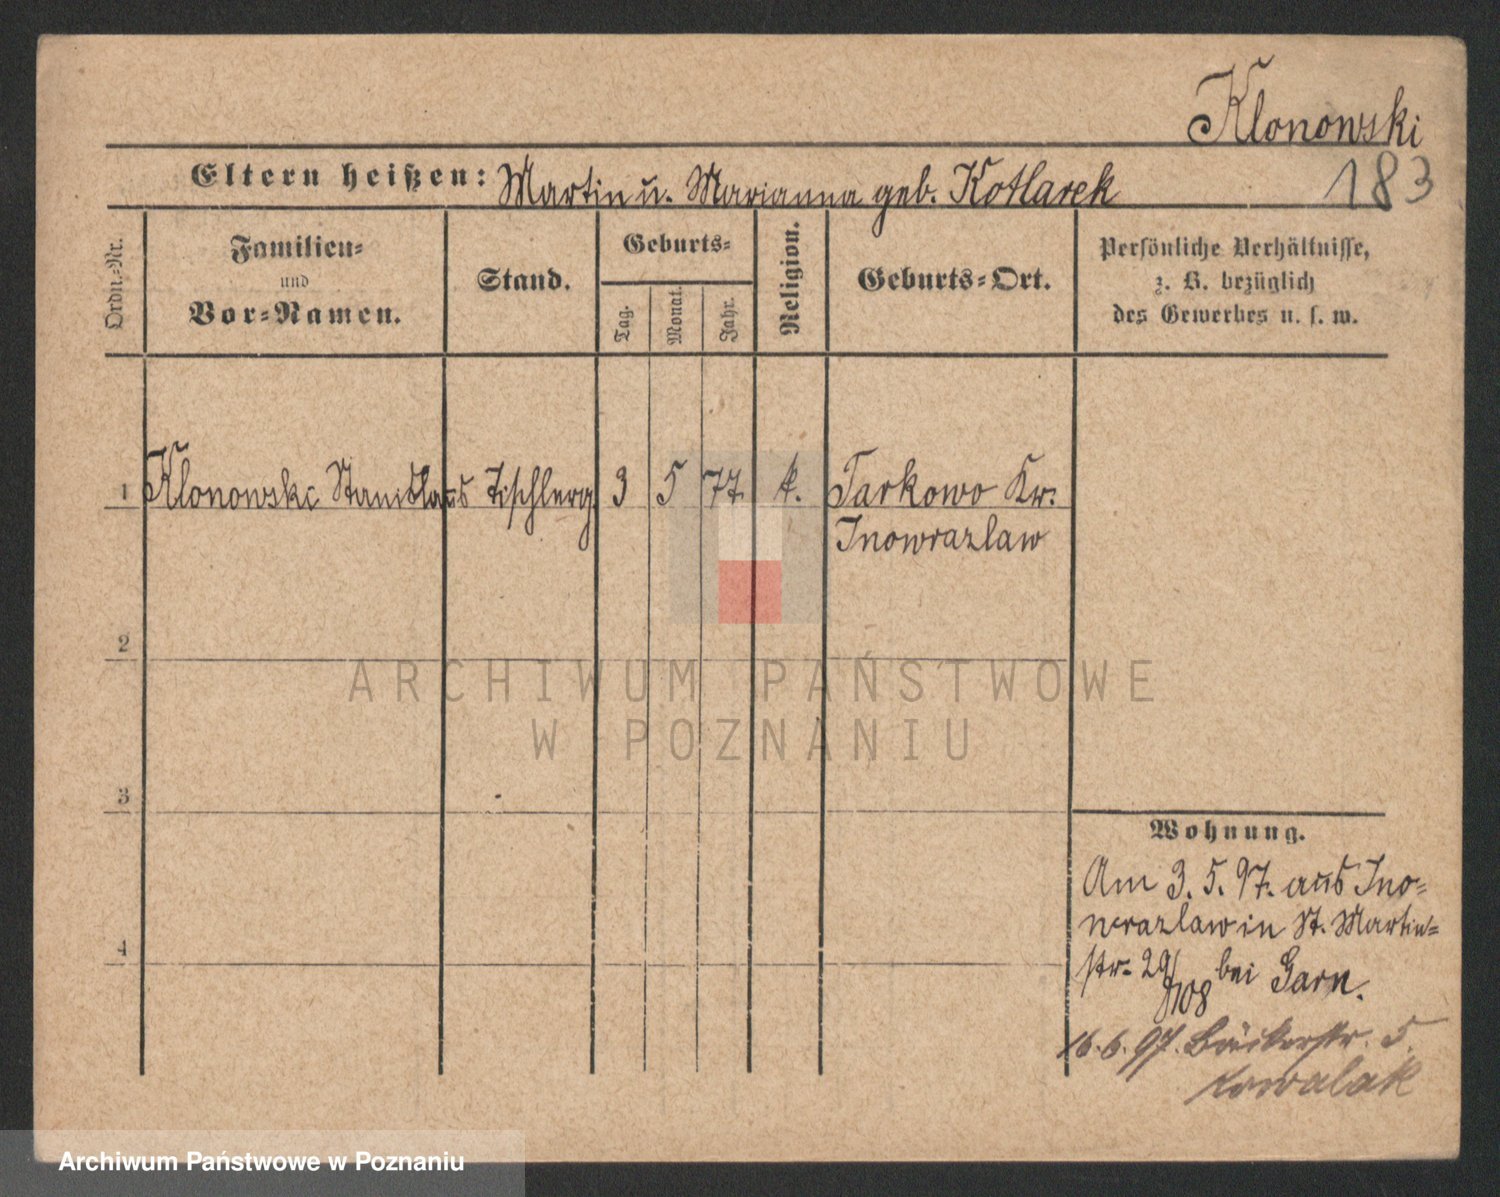 Klonowski
183
Eltern heißen: Martin u. Marianna geb. Kotlarek
Ordn.-Nr.
Familien-
und
Vor-Namen.
Stand.
Geburts-
Tag.
Monat.
Jahr.
Religion.
Geburts-Ort.
Persönliche Verhältnisse,
z. B. bezüglich
des Gewerbes u. s. w.
1 Klonowski Stanislaus Tischlerg. 3 5 77 k. Tarkowo Kr.
Inowrazlaw
2
3
4
Wohnung.
Am 3. 5. 97. aus Ino-
wrazlaw in St. Martin-
str. 29/ bei Garn.
108
16. 6. 97. Bäckerstr. 5.
Kowalak
ARCHIWUM PAŃSTWOWE
W POZNANIU
Archiwum Państwowe w Poznaniu